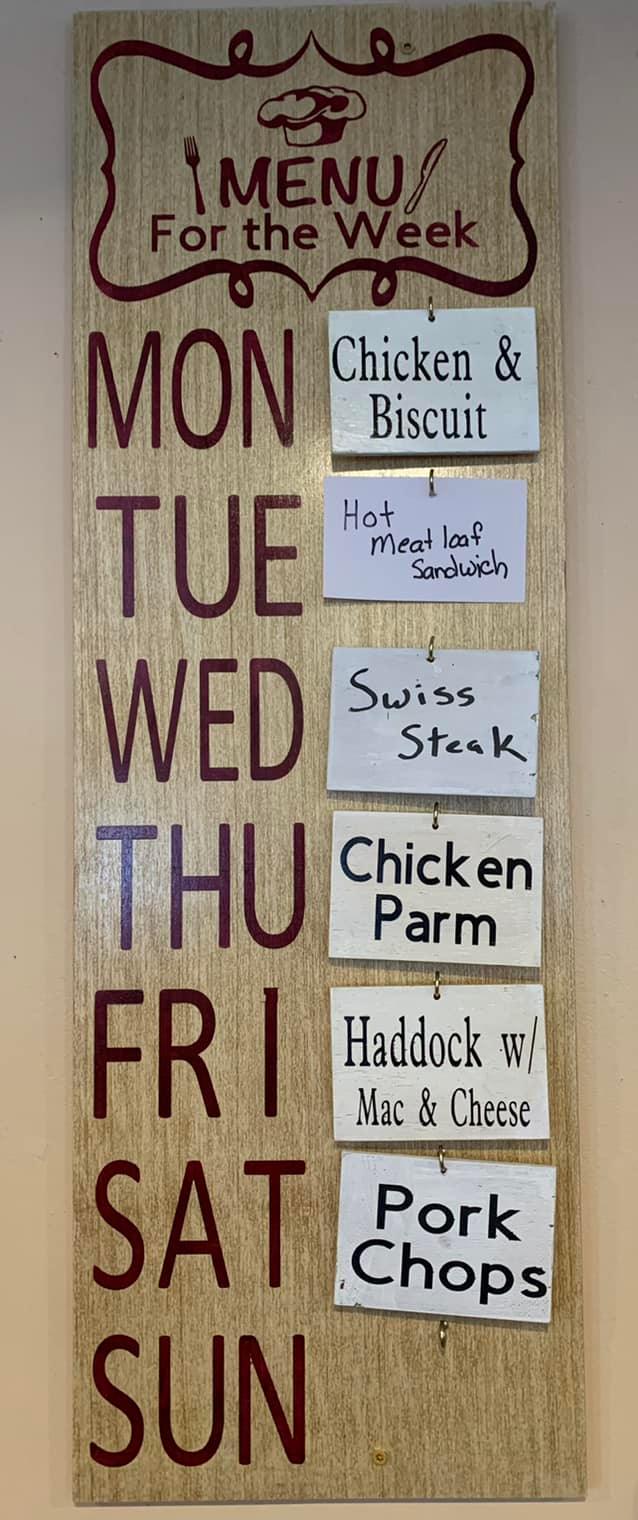 MENU
For the Week
MON
Chicken &
Biscuit
TUE
Hot
Meat loaf
Sandwich
WED
Swiss
Steak
THU
Chicken
Parm
FRI
Haddock w/
Mac & Cheese
SAT
Pork
Chops
SUN